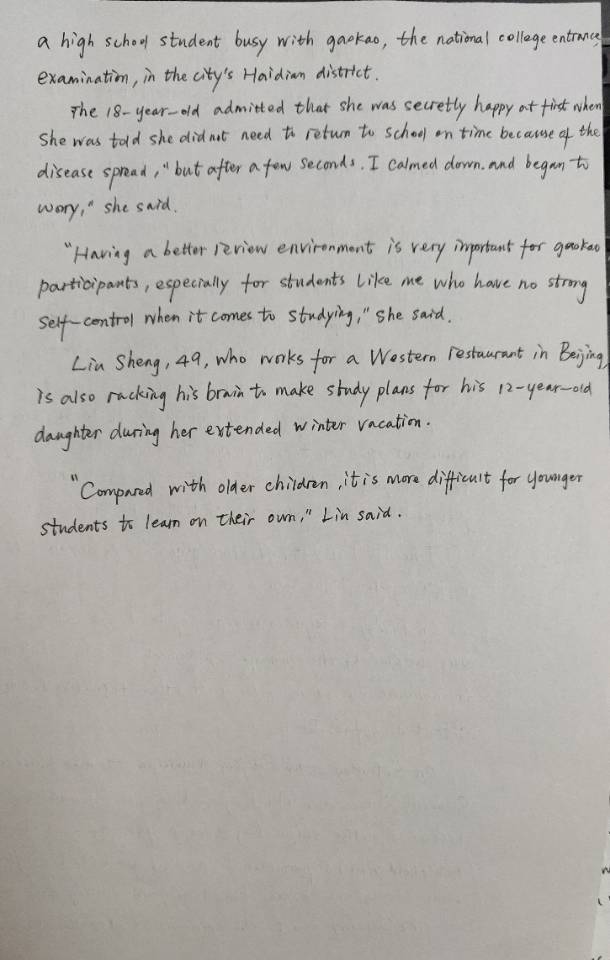 a high school student busy with gaokao, the national college entrance
examination, in the city's Haidian district.
The 18-year-old admitted that she was secretly happy at first when
She was told she did not need to return to school on time because of the
disease spread," but after a few seconds. I calmed down. and began to
wory," she said.
"Having a better review environment is very important for gaokao
participants, especially for students like me who have no strong
Self-control when it comes to studying," she said.
Liu Sheng, 49, who works for a Western restaurant in Beijing,
is also racking his brain to make study plans for his 12-year-old
daughter during her extended winter vacation.
"Compared with older children, it is more difficult for younger
students to learn on their own," Liu said.